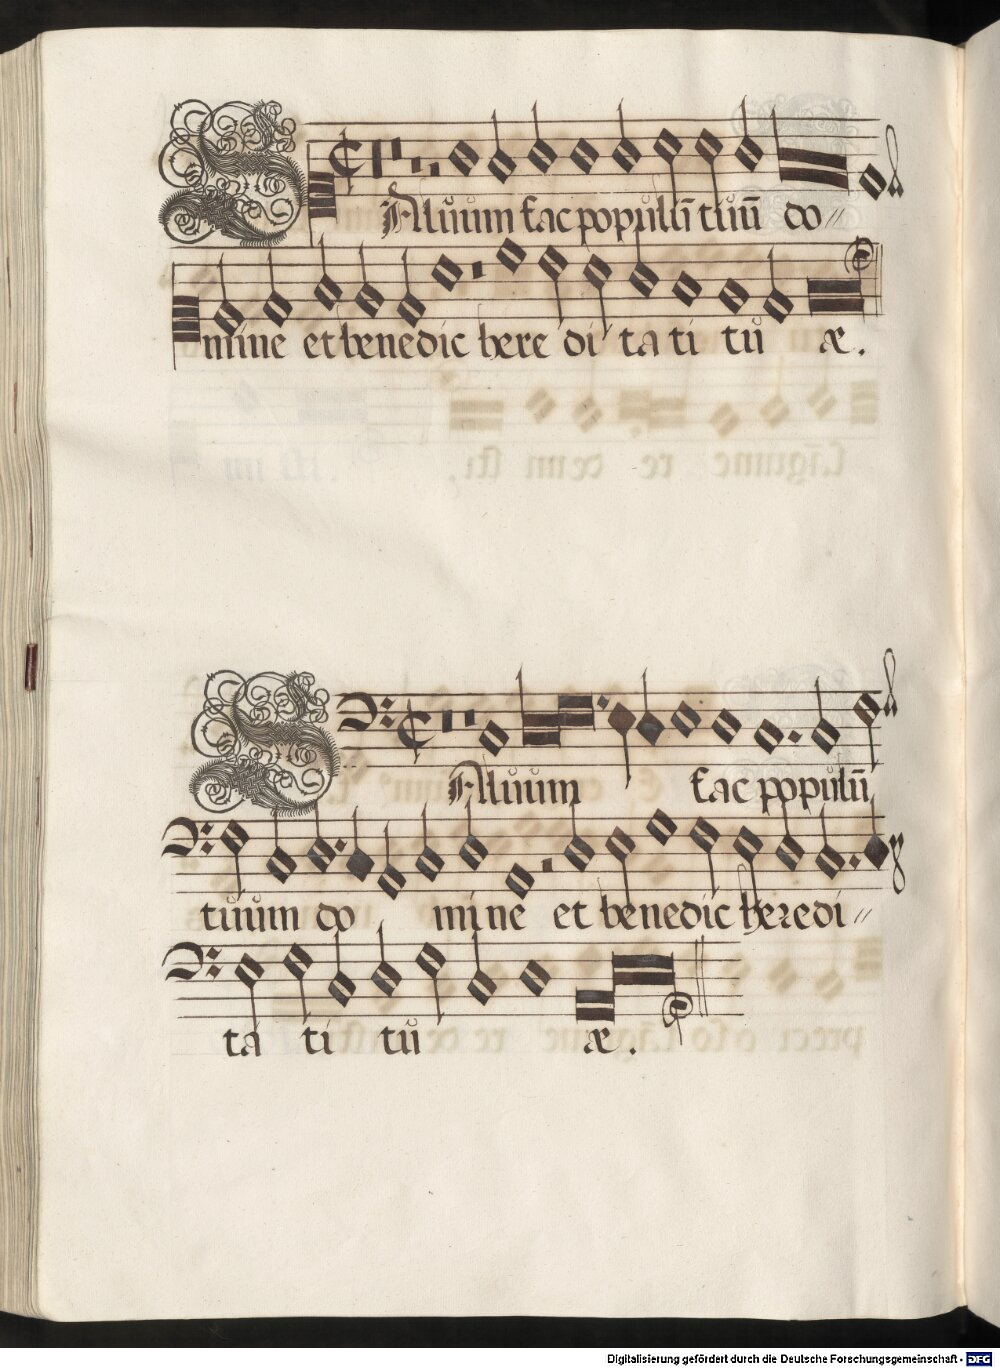 SAluum fac populū tuū do〃
mine et benedic here di ta ti tu æ.
SAluum fac populū
tuum do mine et benedic heredi〃
ta ti tu æ.
Digitalisierung gefördert durch die Deutsche Forschungsgemeinschaft - DFG